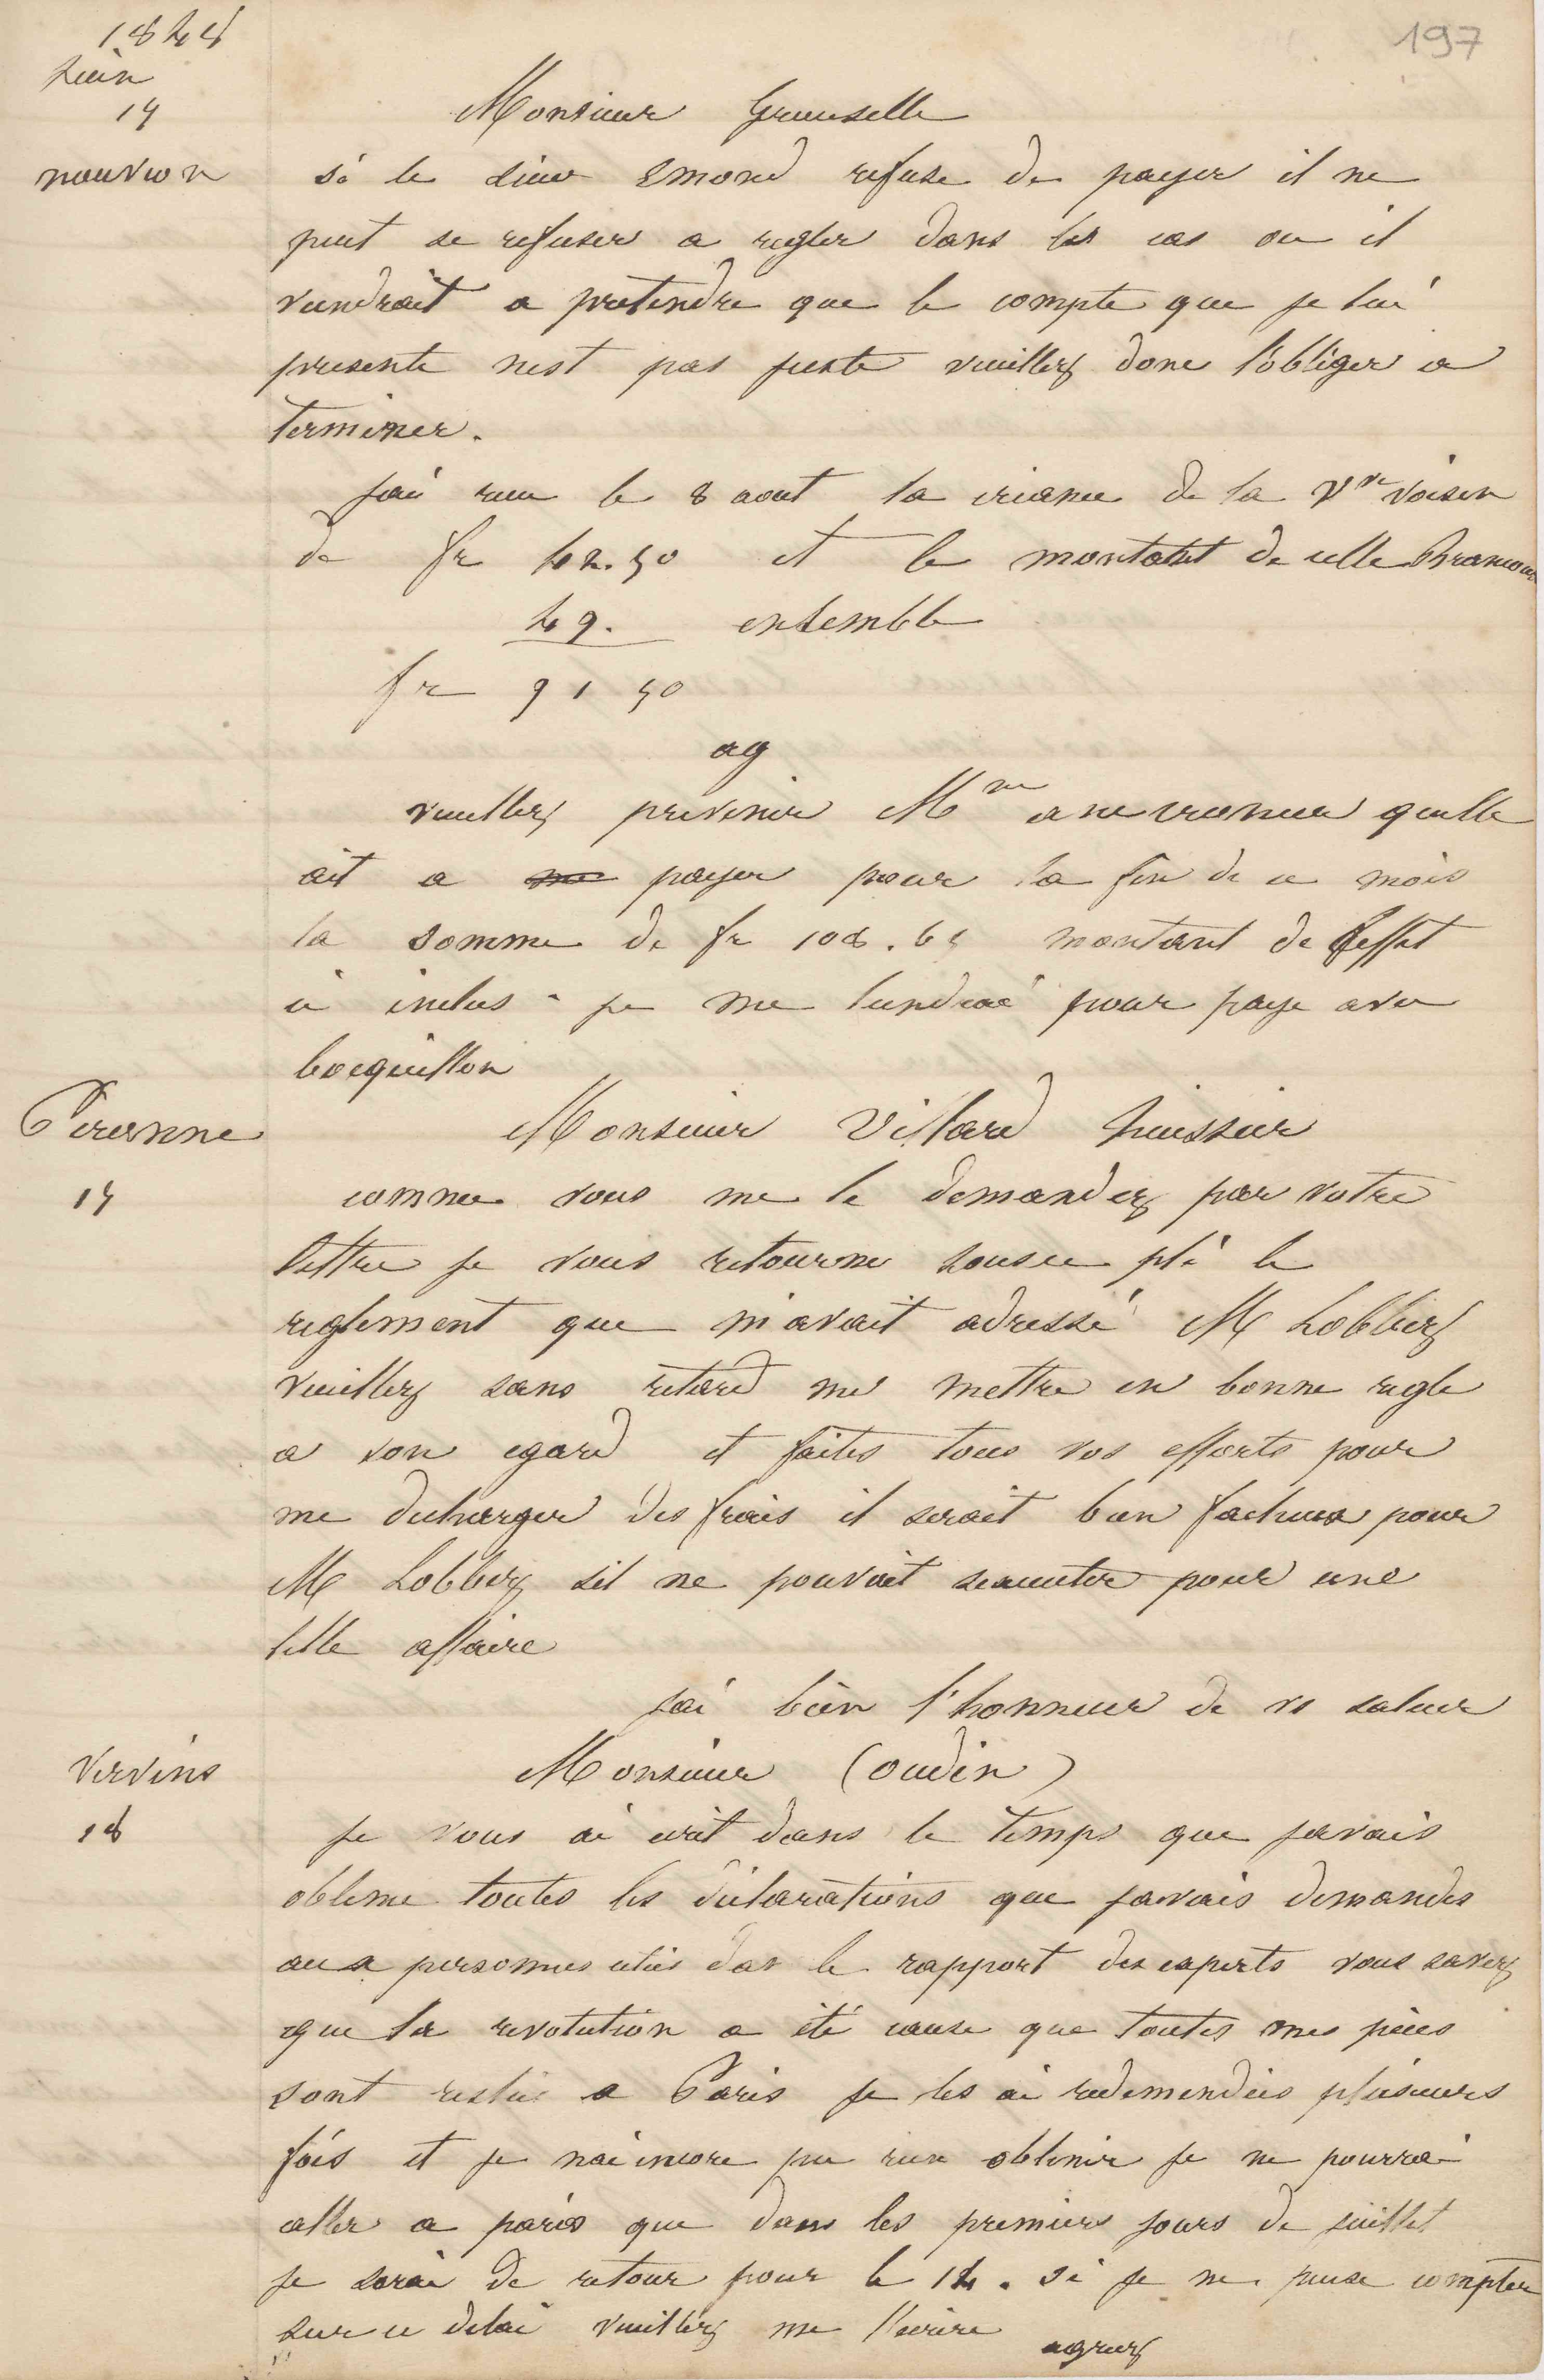 197
1848
Juin
15
nouvion
Monsieur Grunselle
si le sieur Emond refuse de payer il ne
peut se refuser a regler dans les cas ou il
viendrait a pretendre que le compte que je lui
presente nest pas juste veuillez donc l'obliger a
terminer.
jai recu le 8 aout la creance de la Vve Voisin
de fr 42.50 et le montant de celle
49. ensemble
fr 91 50
ag
veuillez prevenir Mme quelle
ait a payer pour la fin de ce mois
la somme de fr 108.65 montant de l'effet
ci inclus - je me tiendrai pour paye avec
bocquillon
Peronne
15
Monsieur Villard huissier
comme vous me le demandez par votre
lettre je vous retourne sous ce pli le
reglement que m'avait adressé M Lobbez
veuillez sans retard me mettre en bonne regle
a son egard et faites tous vos efforts pour
me decharger des frais il serait bien facheux pour
M Lobbez sil ne pouvait sexecuter pour une
telle affaire
jai bien l'honneur de vs saluer
Vervins
18
Monsieur (oudin)
je vous ai ecrit dans le temps que javais
obtenue toutes les déclarations que javais demandes
aux personnes citées dan le rapport des experts vous savez
que la revolution a été cause que toutes mes pieces
sont restées a Paris je les ai redemendées plusieurs
fois et je nai encore pu rien obtenir je ne pourrai
aller a paris que dans les premiers jours de juillet
je serai de retour pour le 14. si je ne puise compter
sur ce delai veuillez me l'ecrire
agreez